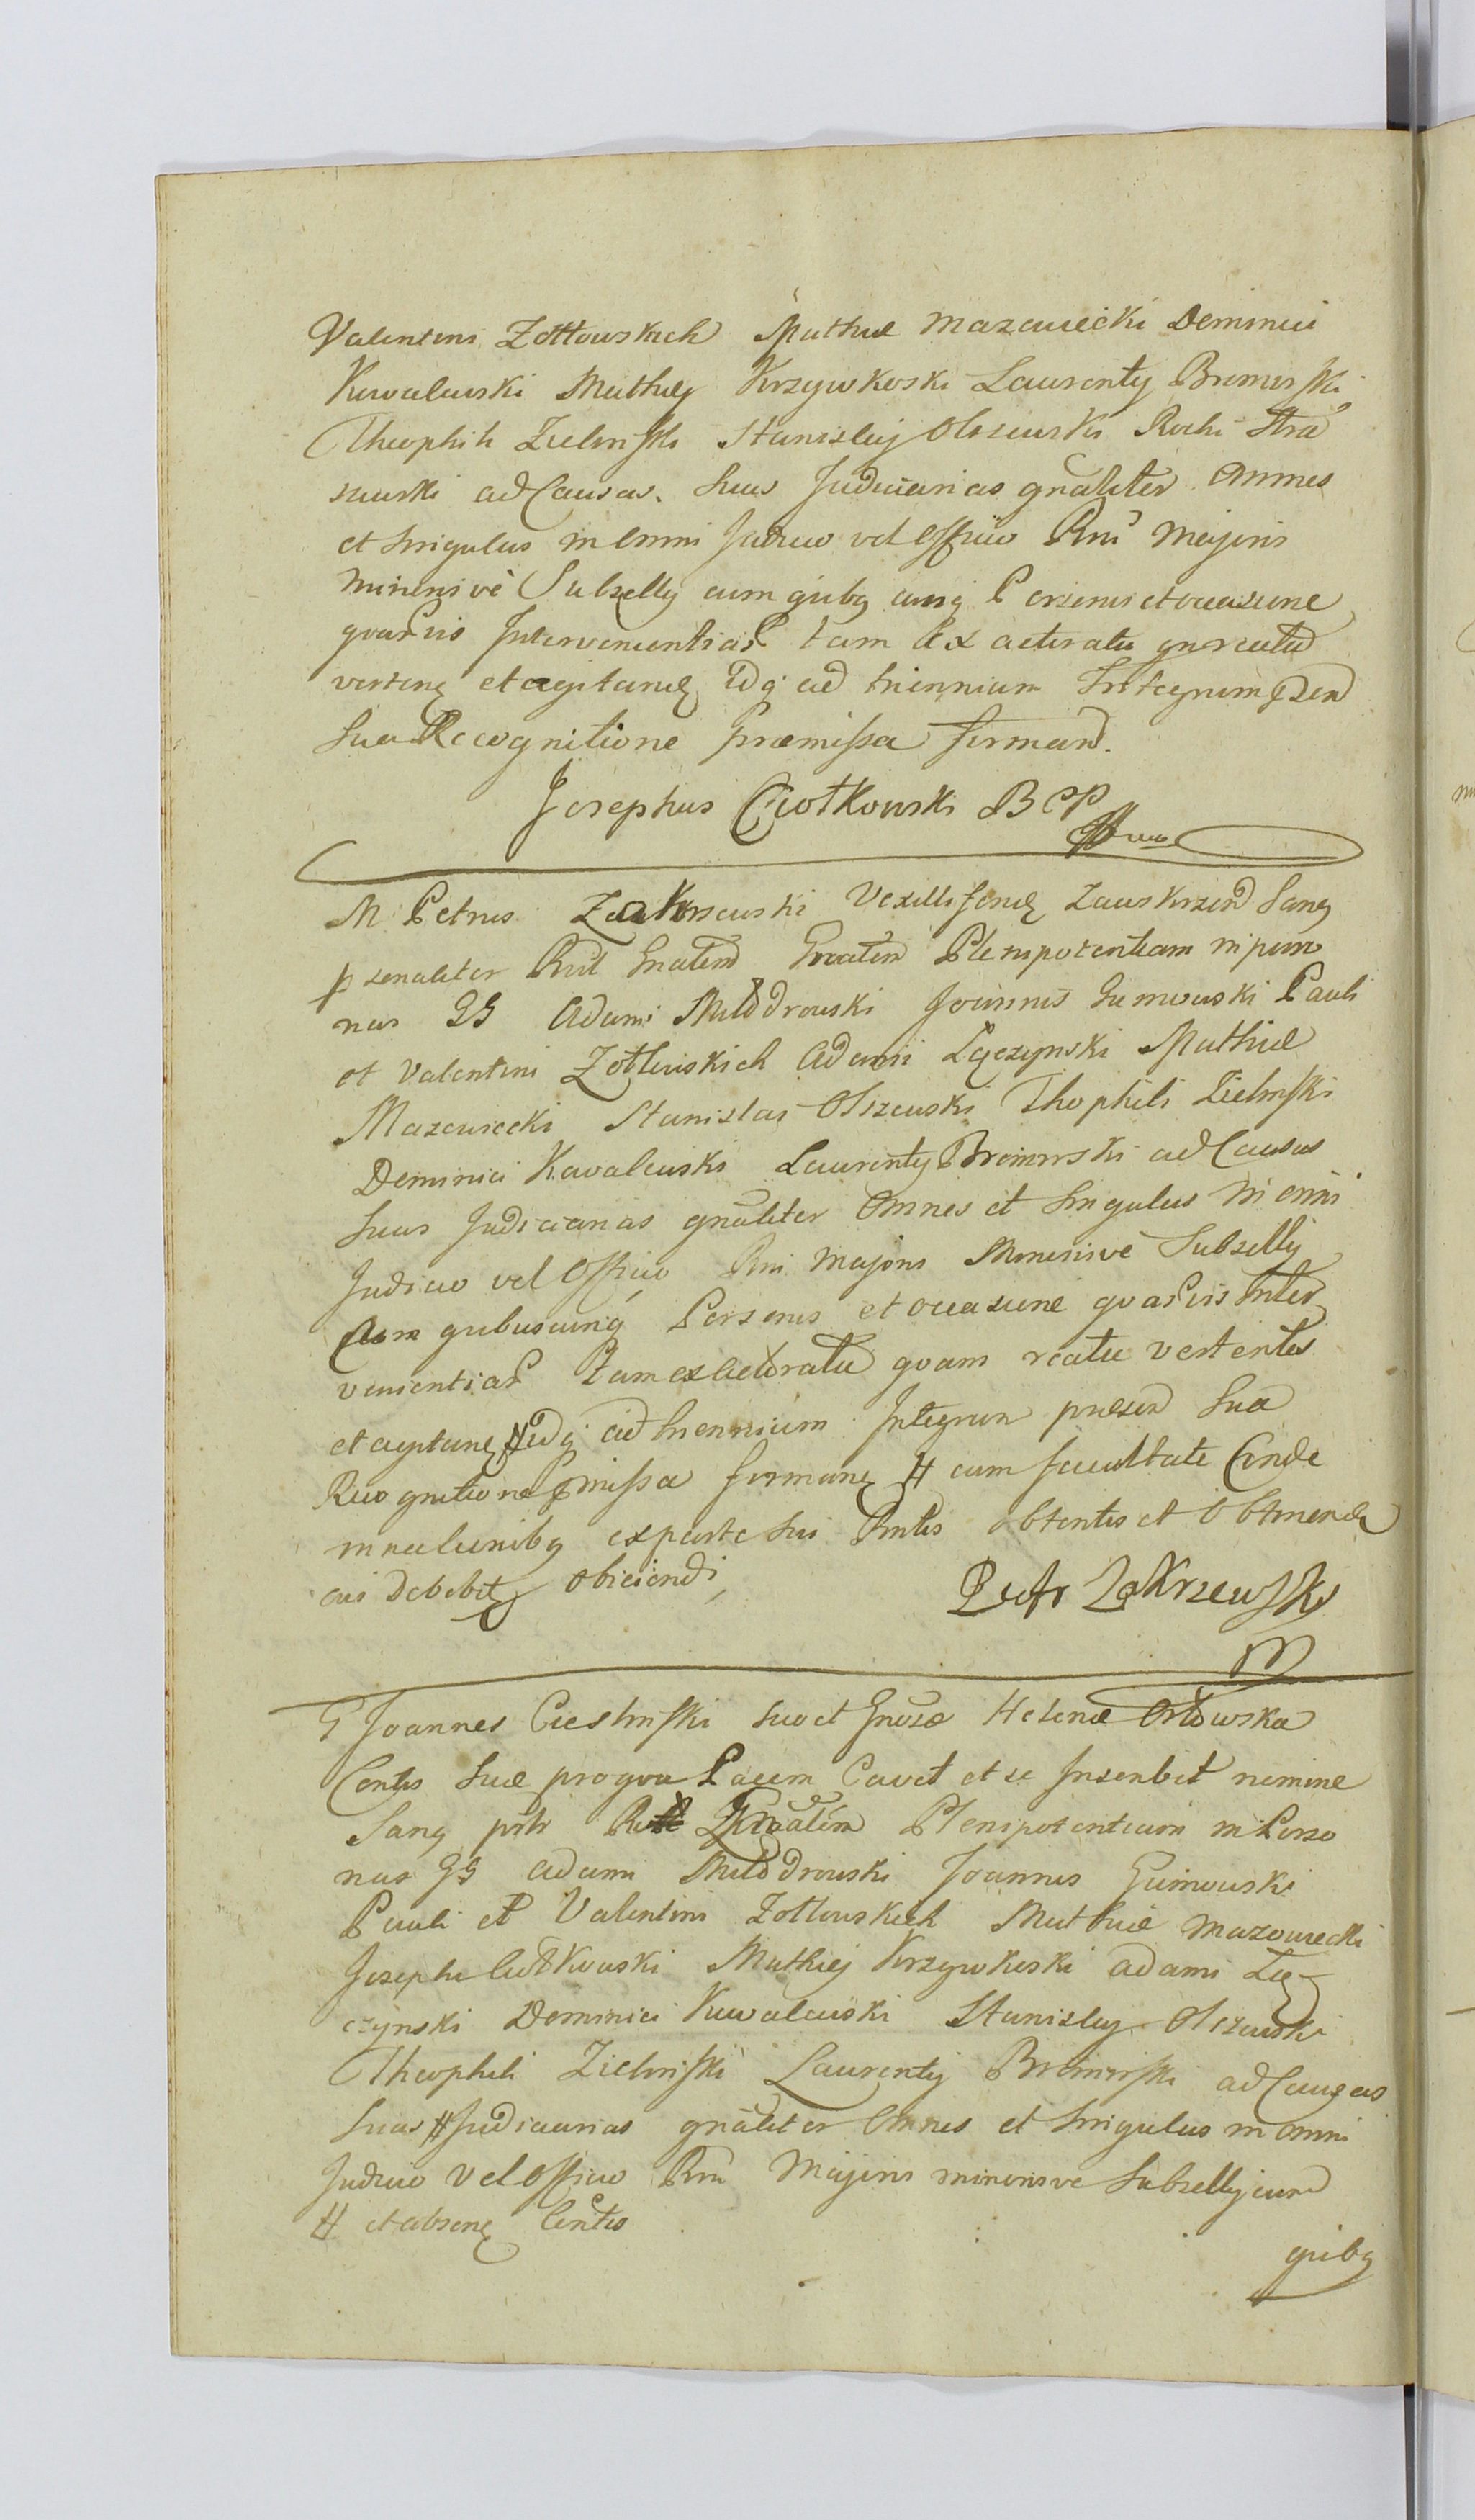 Valentini Zołtowskich Mathiæ Mazowiecki Dominici
Kowalewski Mathiej Krzywkoski Laurentÿ Bromirski
Theophili Zielinski Stanislaj Olszewski Rochi Stra
szewski ad Causas Suas Judiciarias gnaliter Omnes
et Singulas in Omni Judicio vel Officio Rni Majoris
Minorisve Subsellÿ cum quibq cunq Personis et occasione
quarvis Intervenientiar tam Ex actoratu qm reatu
verten et agitand Idq ad triennium Integrum pzen
Sua Recognitione præmissa firmand.
Josephus Ciotkowski B C P
M Petrus Zakrzewski Vexilliferid Zawskrzen Sang
pzenaliter Rvit Gnatem Plenipotentiam in perso
nas GG Adami Młodrowski Joannis Gumowski Pauli
et Valentini Zołtowskich Adami Łęczynski Mathiæ
Mazowiecki Stanislai Olszewski Thophili Zielinski
Dominici Kowalewski Laurentÿ Bromirski ad Causas
Suas Judiciarias gnaliter Omnes et Singulas in omni
Judicio vel Officio Rni Majoris Minorisve Subsellÿ
Cum quibuscunq Personis et occasione quarvis Inter
venientiar Tam ex actoratu quam reatu vertentes
et agitand # Idq ad triennium Integrum præsen Sua
Recognitione pmissa firmand # cum facultate Conde
mnationibq ex parte Sui Rntis obtentis et Obtinend
cui debebit obiiciendi
Piotr Zakrzewski
G Joannes Cieslinski suo et Gnosæ Helenæ Orłowska
Contis Suæ pro qua Pacem Cavet et se Inscribit nomine
Sang pnlr Rvit Gnalem Plenipotentiam in Perso
nas GG Adami Młodrowski Joannis Gumowski
Pauli et Valentini Zołtowskich Mathiæ Mazowiecki
Josephi Ciotkowski Mathiej Krzywkoski Adami Łę
czynski Dominici Kowalewski Stanislaj Olszewski
Theophili Zielinski Laurentÿ Bromirski ad Causas
Suas # Judiciarias gnaliter Omnes et Singulas in omni
Judicio vel Officio Rni Majoris minorisve Subsellÿ cum
# et absen Contis
quibq